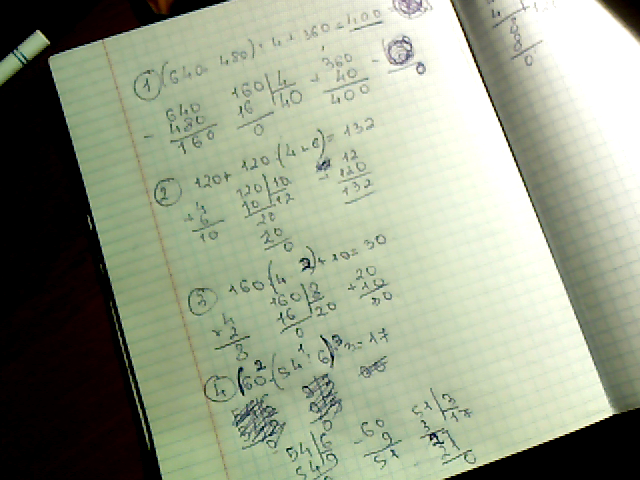 1 (640 - 480) : 4 + 360 = 400
- 640 160 | 4 + 360
480 16 40 40
160 0 400
2 120 + 120 : (4 + 6) = 132
+ 4 120 | 10 + 12
6 10 12 120
10 20 132
20
0
3 160 : (4 · 2) + 10 = 30
4 160 | 8 + 20
2 16 20 10
8 0 30
4 (60 - (54 : 6)) : 3 = 17
54 | 6 - 60 51 | 3
54 9 9 3 17
51 21
0